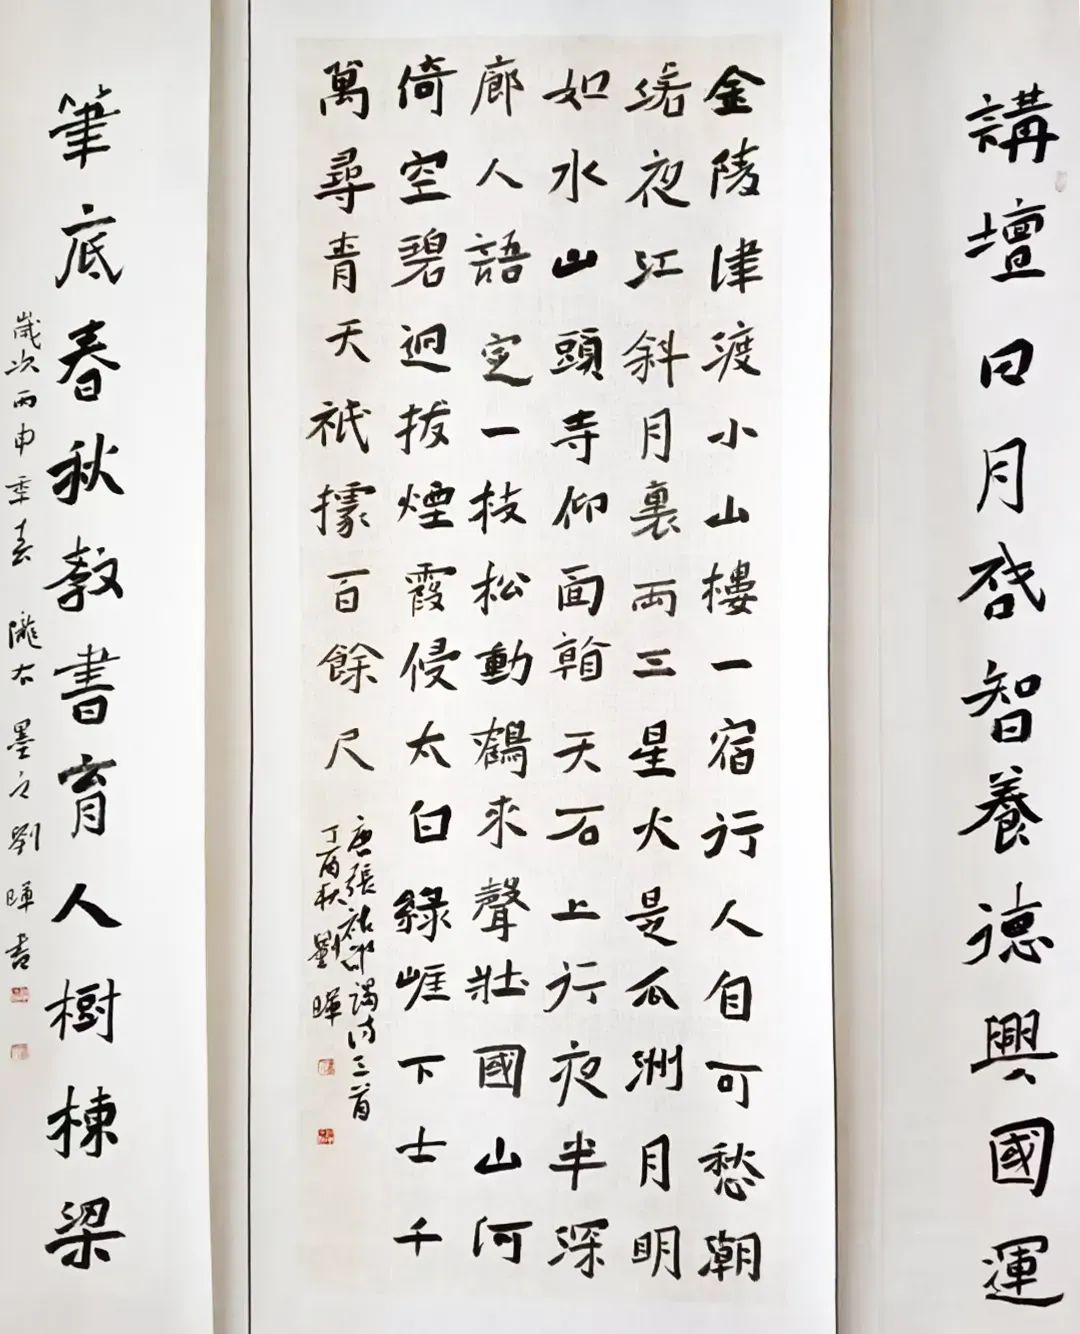 講壇日月启智養德興國運
金陵津渡小山樓一宿行人自可愁潮
落夜江斜月裏両三星火是瓜洲月明
如水山頭寺仰面看天石上行夜半深
廊人語定一枝松動鶴來聲壯國山河
倚空碧迥拔煙霞侵太白綠崕下士千
萬尋青天祇據百餘尺
唐張祜詩三首
丁酉秋劉暉
筆底春秋教書育人樹棟梁
歲次丙申季春 隴右墨之劉暉書